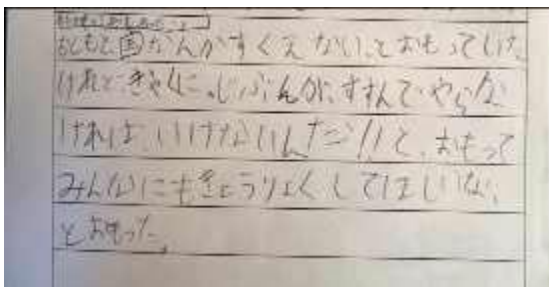 おともと国がんがすくえない、とおもってしけ
けれどぎゃくに、じぶんが、すすんでやらな
ければいけないんだ!!と、おもって
みんなにもきょうりょくしてほしいな、
とおもった。